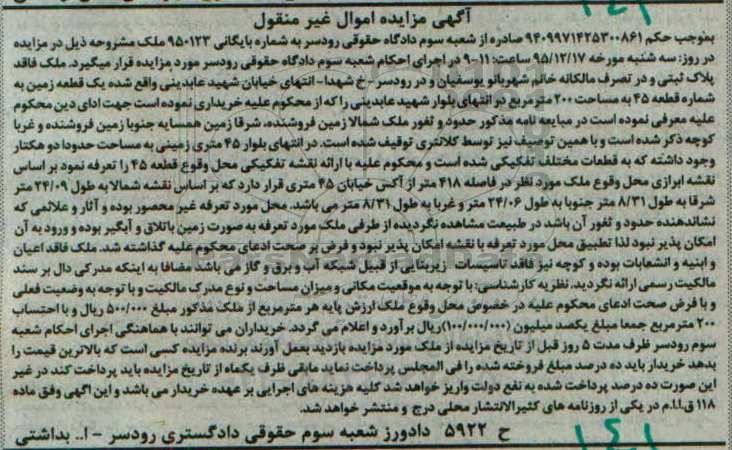 آگهی مزایده اموال غیر منقول
بموجب حکم ۹۴۰۹۹۷۱۴۲۵۳۰۰۸۶۱ صادره از شعبه سوم دادگاه حقوقی رودسر به شماره بایگانی ۹۵۰۱۲۳ ملک مشروحه ذیل در مزایده
در روز: سه شنبه مورخه ۹۵/۱۲/۱۷ ساعت: ۱۱-۹ در اجرای احکام شعبه سوم دادگاه حقوقی رودسر مورد مزایده قرار میگیرد. ملک فاقد
پلاک ثبتی و در تصرف مالکانه خانم شهربانو یوسفیان و در رودسر- خ شهدا- انتهای خیابان شهید عابدینی واقع شده یک قطعه زمین به
شماره قطعه ۴۵ به مساحت ۲۰۰ مترمربع در انتهای بلوار شهید عابدینی را که از محکوم علیه خریداری نموده است جهت ادای دین محکوم
علیه معرفی نموده است در مبایعه نامه مذکور حدود و ثغور ملک شمالا زمین فروشنده، شرقا زمین همسایه جنوبا زمین فروشنده و غربا
کوچه ذکر شده است و با همین توصیف نیز توسط کلانتری توقیف شده است. در انتهای بلوار ۴۵ متری زمینی به مساحت حدودا دو هکتار
وجود داشته که به قطعات مختلف تفکیکی شده است و محکوم علیه با ارائه نقشه تفکیکی محل وقوع قطعه ۴۵ را تعرفه نمود بر اساس
نقشه ابرازی محل وقوع ملک مورد نظر در فاصله ۴۱۸ متر از آکس خیابان ۴۵ متری قرار دارد که بر اساس نقشه شمالا به طول ۲۴/۰۹ متر
شرقا به طول ۸/۳۱ متر جنوبا به طول ۲۴/۰۶ متر و غربا به طول ۸/۳۱ متر می باشد. محل مورد تعرفه غیر محصور بوده و آثار و علائمی که
نشاندهنده حدود و ثغور آن باشد در طبیعت مشاهده نگردید از طرفی ملک مورد تعرفه به صورت زمین باتلاق و آبگیر بوده و ورود به آن
امکان پذیر نبود لذا تطبیق محل مورد تعرفه با نقشه امکان پذیر نبود و فرض بر صحت ادعای محکوم علیه گذاشته شد. ملک فاقد اعیان
و ابنیه و انشعابات بوده و کوچه نیز فاقد تاسیسات زیربنایی از قبیل شبکه آب و برق و گاز می باشد مضافا به اینکه مدرکی دال بر سند
مالکیت رسمی ارائه نگردید. نظریه کارشناسی: با توجه به موقعیت مکانی و میزان مساحت و نوع مدرک مالکیت و با توجه به وضعیت فعلی
و با فرض صحت ادعای محکوم علیه در خصوص محل وقوع ملک ارزش پایه هر مترمربع از ملک مذکور مبلغ ۵۰۰/۰۰۰ ریال و با احتساب
۲۰۰ مترمربع جمعا مبلغ یکصد میلیون (۱۰۰/۰۰۰/۰۰۰)ریال برآورد و اعلام می گردد. خریداران می توانند با هماهنگی اجرای احکام شعبه
سوم رودسر ظرف مدت ۵ روز قبل از تاریخ مزایده از ملک مورد مزایده بازدید بعمل آورند برنده مزایده کسی است که بالاترین قیمت را
بدهد خریدار باید ده درصد مبلغ فروخته شده را فی المجلس پرداخت نماید مابقی ظرف یکماه از تاریخ مزایده باید پرداخت کند در غیر
این صورت ده درصد پرداخت شده به نفع دولت واریز خواهد شد کلیه هزینه های اجرایی بر عهده خریدار می باشد و این اگهی وفق ماده
۱۱۸ ق.ا.ا.م در یکی از روزنامه های کثیرالانتشار محلی درج و منتشر خواهد شد.
ح ۵۹۲۲ دادورز شعبه سوم حقوقی دادگستری رودسر - ا.. بداشتی